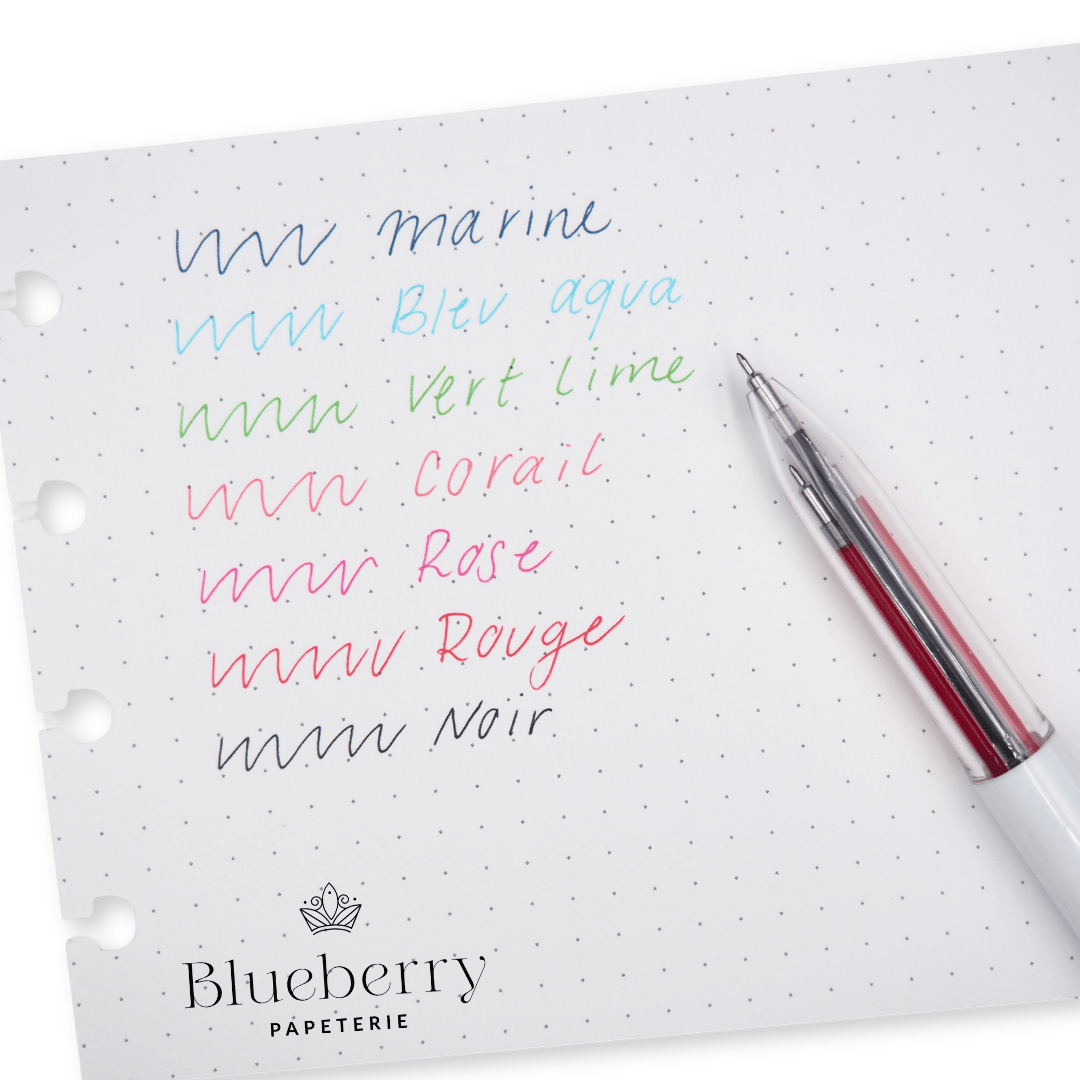 marine
Bleu aqua
Vert lime
Corail
Rose
Rouge
Noir
Blueberry
PAPETERIE